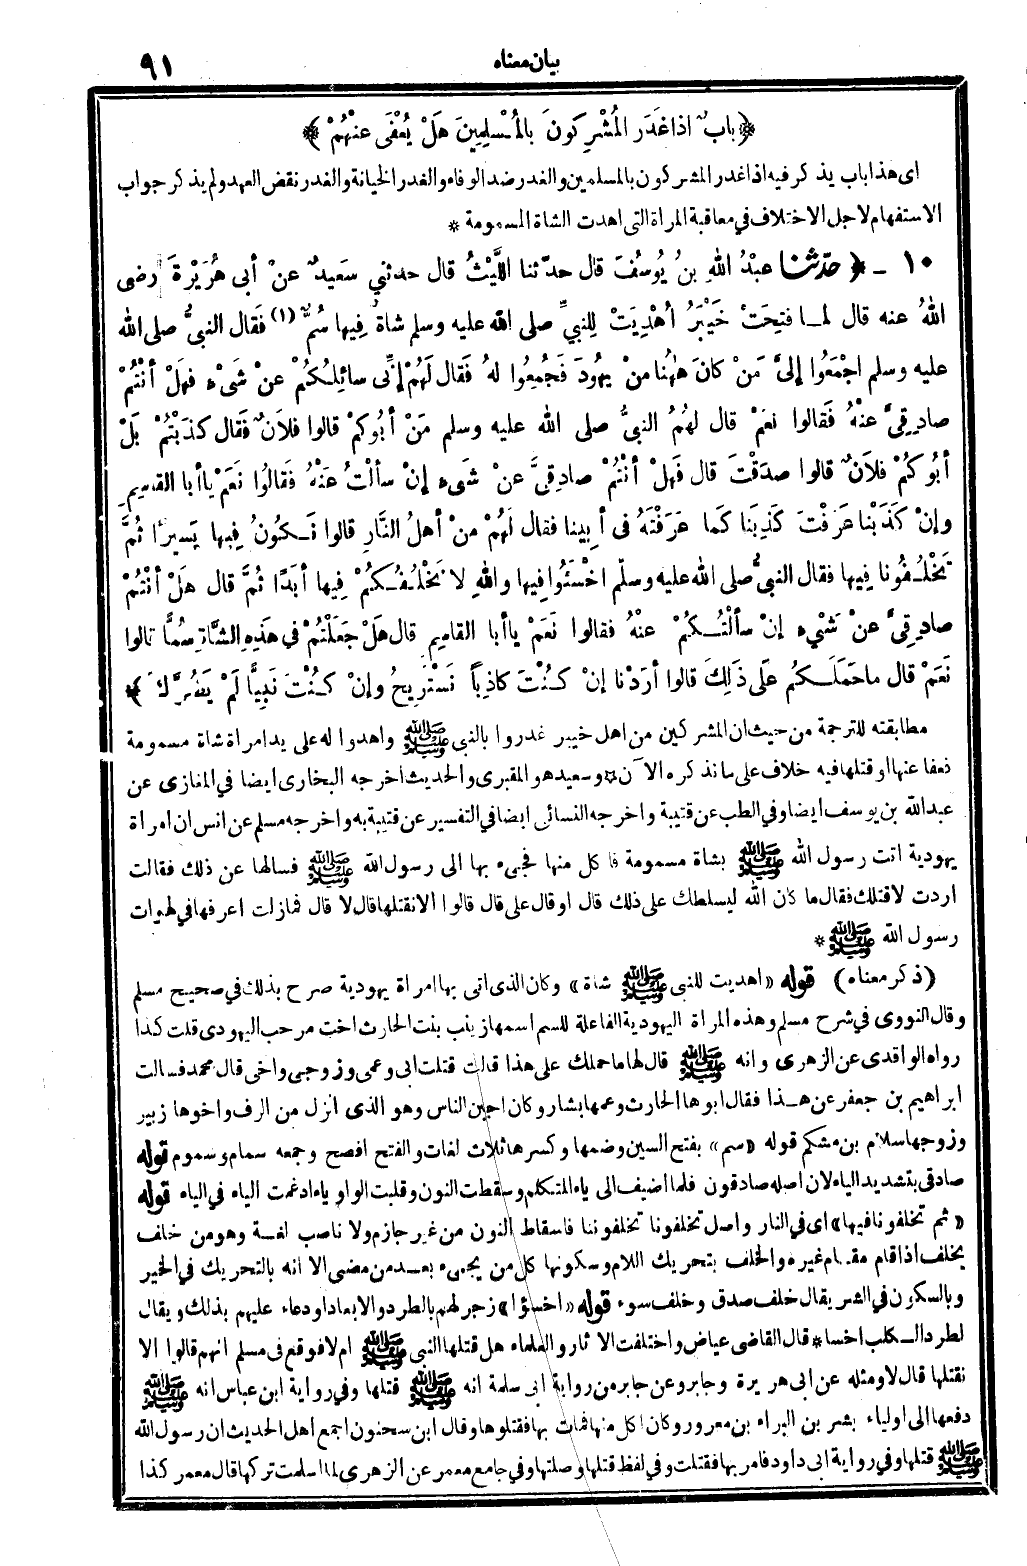 بيان معناه
٩١
﴿ بابٌ اذا غَدَرَ المُشْرِكونَ بالمُسْلِمِينَ هَلْ يُعْفَى عنْهُمْ ﴾
اى هذا باب يذكر فيه اذا غدر المشركون بالمسلمين والغدر ضد الوفاء والغدر الخيانة والغدر نقض العهد ولم يذكر جواب
الاستفهام لاجل الاختلاف في معاقبة المراة التى اهدت الشاة المسمومة *
١٠ ـ ﴿ حدثنا عبْدُ اللهِ بنُ يُوسُفَ قال حدّثنا اللَّيْثُ قال حدثني سَعيدٌ عنْ أبى هُرَيْرةَ رضى
اللهُ عنه قال لمـا فتِحَتْ خَيْبَرُ أُهْدِيَتْ لِلنبيِّ صلى الله عليه وسلم شاةٌ فِيها سُمٌّ (١) فَقال النبيُّ صلى الله
عليه وسلم اجْمَعُوا إلىَّ مَنْ كانَ هٰهُنا منْ يهُودَ فَجُمِعُوا لهُ فَقال لَهُمْ إنِّى سائِلُكُمْ عنْ شَىْءٍ فهَلْ أنْتُمْ
صادِقِىَّ عنْهُ فَقالوا نعَمْ قال لهُمُ النبيُّ صلى الله عليه وسلم مَنْ أبُوكمْ قالوا فلاَنٌ فَقال كذَبْتُمْ بَلْ
أبُوكُمْ فلاَنٌ قالوا صدَقْتَ قال فهَلْ أنْتُمْ صادِقِىَّ عنْ شَىءٍ إنْ سألْتُ عَنْهُ فَقالُوا نَعَمْ ياأبا القاسِمِ
وإنْ كَذَبْنا عرَفْتَ كَذِبَنا كَما عَرَفْتَهُ فى أبِينا فقال لَهُمْ منْ أهلُ النَّارِ قالوا نَـكُونُ فِيها يَسيراً ثُمَّ
تَخْلُـفُونا فِيها فقال النبيُّ صلى الله عليه وسلّم اخْسَئُوا فيها واللهِ لا نَخْلُفُـكُمْ فِيها أبَدًا ثُمَّ قال هلْ أنْتُمْ
صادِقِىَّ عنْ شَىْءٍ إنْ سألْتُـكُمْ عنْهُ فقالوا نَعَمْ ياأبا القاسِمِ قال هَلْ جَعَلْتُمْ في هَذِهِ الشَّاةِ سُمًّا قالوا
نَعَمْ قال ماحَمَلَـكُم عَلَى ذَلِكَ قالوا أرَدْنا إنْ كُـنْتَ كاذِباً نَسْتَرِيحُ وإنْ كُـنْتَ نَبِيًّا لَمْ يَضُرَّكَ ﴾
مطابقته للترجمة من حيث ان المشركين من اهل خيبر غدروا بالنبى ﷺ واهدوا له على يد امراة شاة مسمومة
فعفا عنها او قتلها فيه خلاف على ما نذكره الآن * وسعيد هو المقبرى والحديث اخرجه البخارى ايضا في المغازى عن
عبد الله بن يوسف ايضا وفي الطب عن قتيبة واخرجه النسائى ايضا في التفسير عن قتيبة به واخرجه مسلم عن انس ان امراة
يهودية اتت رسول الله ﷺ بشاة مسمومة فاكل منها فجىء بها الى رسول الله ﷺ فسالها عن ذلك فقالت
اردت لاقتلك فقال ما كان الله ليسلطك على ذلك قال او قال على قال قالوا الا نقتلها قال لا قال فمازلت اعرفها في لهوات
رسول الله ﷺ *
(ذكر معناه) قوله «اهديت للنبى ﷺ شاة» وكان الذى اتى بها امراة يهودية صرح بذلك في صحيح مسلم
وقال النووى في شرح مسلم وهذه المراة اليهودية الفاعلة للسم اسمها زينب بنت الحارث اخت مرحب اليهودى قلت كذا
رواه الواقدى عن الزهرى وانه ﷺ قال لها ما حملك على هذا قالت قتلت ابى وعمى وزوجى واخى قال محمد فسالت
ابراهيم بن جعفر عن هـذا فقال ابوها الحارث وعمها بشار وكان اجبن الناس وهو الذى انزل من الرف واخوها زبير
وزوجها سلام بن مشكم قوله «سم» بفتح السين وضمها وكسرها ثلاث لغات والفتح افصح وجمعه سمام وسموم قوله
صادقى بتشديد الياء لان اصله صادقون فلما اضيف الى ياء المتكلم وسقطت النون وقلبت الواو ياء ادغمت الياء في الياء قوله
«ثم تخلفونا فيها» اى في النار واصل تخلفونا تخلفوننا فاسقاط النون من غير جازم ولا ناصب لغـة وهو من خلف
يخلف اذا قام مقـام غيره والخلف بتحريك اللام وسكونها كل من يجىء بعـد من مضى الا انه بالتحريك في الخير
وبالسكون في الشر يقال خلف صدق وخلف سوء قوله «اخسؤا» زجر لهم بالطرد والابعاد او دعاء عليهم بذلك ويقال
لطرد الـكلب اخسا * قال القاضى عياض واختلفت الاثار والعلماء هل قتلها النبى ﷺ ام لا فوقع فى مسلم انهم قالوا الا
نقتلها قال لا ومثله عن ابى هريرة وجابر وعن جابر من رواية ابى سلمة انه ﷺ قتلها وفي رواية ابن عباس انه ﷺ
دفعها الى اولياء بشر بن البراء بن معرور وكان اكل منها فمات بها فقتلوها وقال ابن سحنون اجمع اهل الحديث ان رسول الله
ﷺ قتلها وفي رواية ابى داود فامر بها فقتلت وفي لفظ قتلها وصلبها وفي جامع معمر عن الزهرى لما اسلمت تركها قال معمر كذا